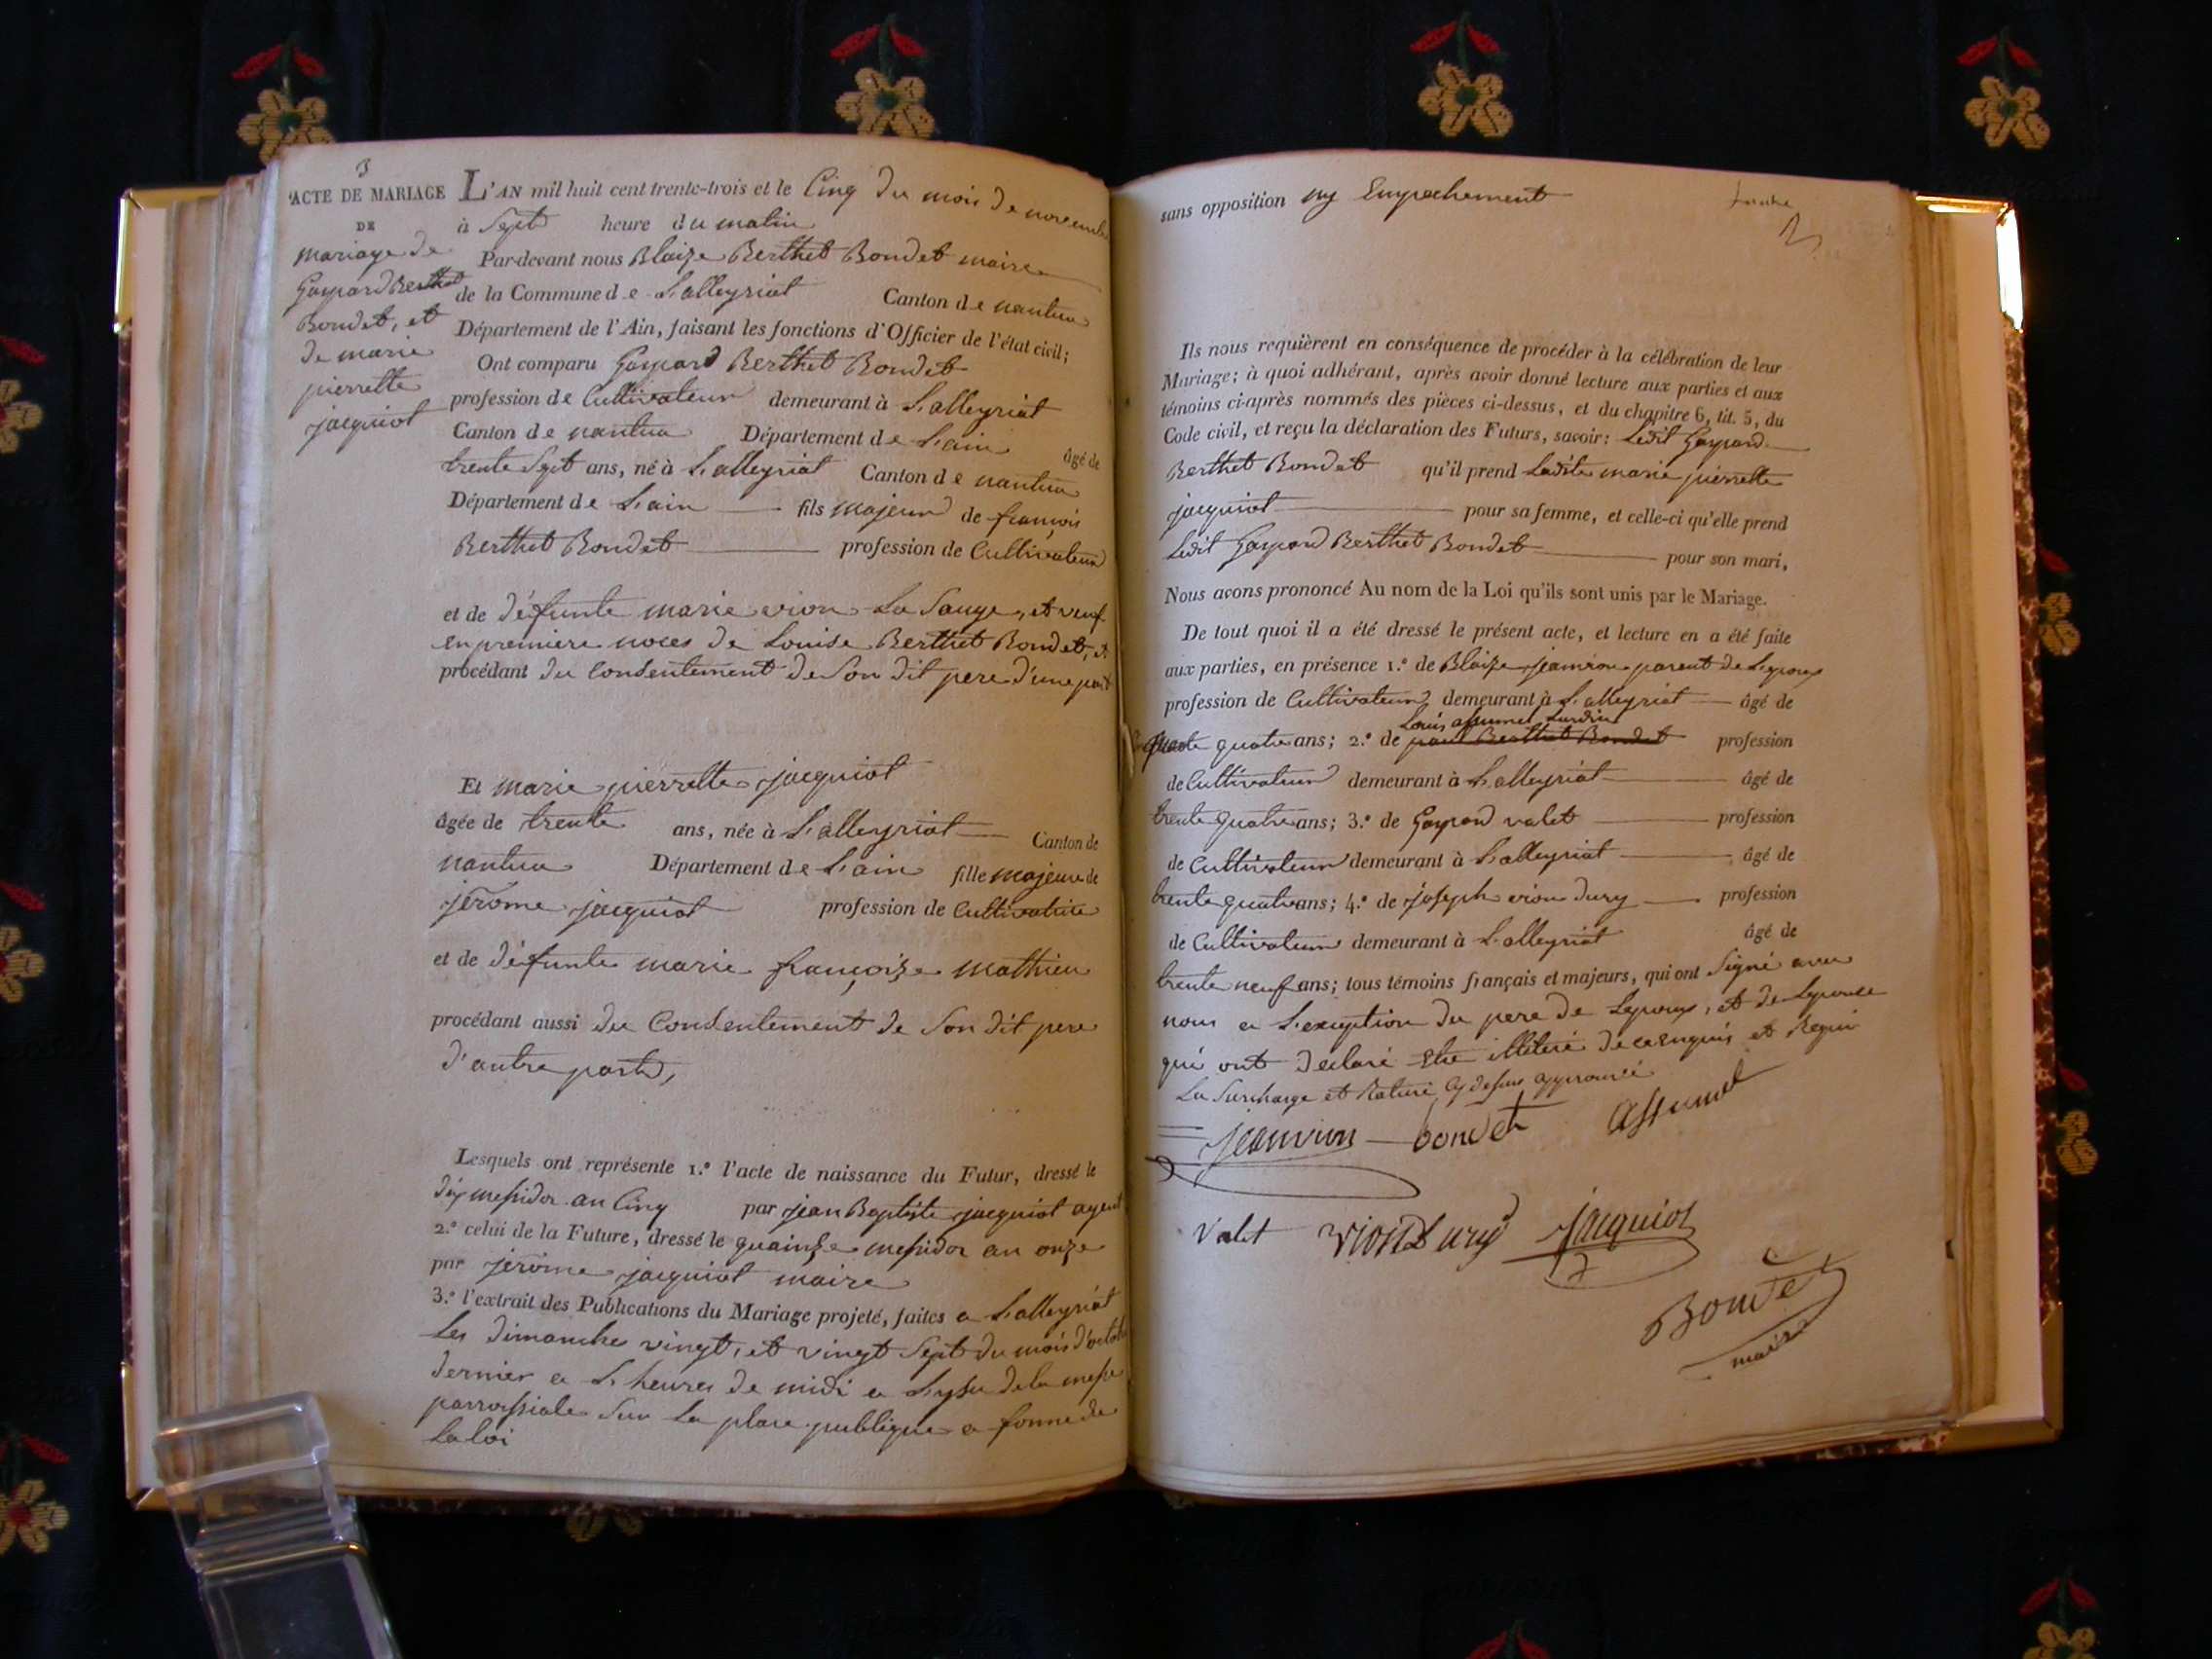 3
ACTE DE MARIAGE
DE
mariage de
Gaspard Berthet
Bondet, et
de marie
pierrette
jacquiot
L'AN mil huit cent trente-trois et le Cinq du mois de novembre
à Sept heure du matin
Par-devant nous Blaize Berthet Bondet maire
de la Commune de L'alleyriat Canton de nantua
Département de l'Ain, faisant les fonctions d'Officier de l'état civil;
Ont comparu Gaspard Berthet Bondet
profession de Cultivateur demeurant à L'alleyriat
Canton de nantua Département de L'ain âgé de
trente Sept ans, né à L'alleyriat Canton de nantua
Département de L'ain fils majeur de françois
Berthet Bondet profession de Cultivateur
et de défunte marie vion La Sauge, et veuf
en premiere noces de Louise Berthet Bondet, et
procédant du Consentement de Son dit pere d'une part
Et marie pierrette jacquiot
âgée de trente ans, née à L'alleyriat Canton de
nantua Département de L'ain fille majeure de
jérome jacquiot profession de Cultivatrice
et de défunte marie françoize mathieu
procédant aussi du Consentement de Son dit pere
d'autre part,
Lesquels ont représente 1.º l'acte de naissance du Futur, dressé le
dix messidor an Cinq par jean Baptiste jacquiot agent
2.º celui de la Future, dressé le quainze messidor an onze
par jérome jacquiot maire
3.º l'extrait des Publications du Mariage projeté, faites a L'alleyriat
Les dimanche vingt, et vingt Sept du mois d'octobre
dernier a L'heures de midi a L'yssu de la messe
parroissiale Sur La place publique a forme de
La loi
sans opposition ny Empechement
Ils nous requièrent en conséquence de procéder à la célébration de leur
Mariage; à quoi adhérant, après avoir donné lecture aux parties et aux
témoins ci-après nommés des pièces ci-dessus, et du chapitre 6, tit. 5, du
Code civil, et reçu la déclaration des Futurs, savoir: Ledit Gaspard
Berthet Bondet qu'il prend Ladite marie pierrette
jacquiot pour sa femme, et celle-ci qu'elle prend
Ledit Gaspard Berthet Bondet pour son mari,
Nous avons prononcé Au nom de la Loi qu'ils sont unis par le Mariage.
De tout quoi il a été dressé le présent acte, et lecture en a été faite
aux parties, en présence 1.º de Blaize jeanvion parent de Lepoux
profession de Cultivateur demeurant à L'alleyriat âgé de
Louis assumel Lurdin
quatre ans; 2.º de paul Berthet Bondet profession
de Cultivateur demeurant à L'alleyriat âgé de
trente quatre ans; 3.º de Gaspard valet profession
de Cultivateur demeurant à L'alleyriat âgé de
trente quatre ans; 4.º de joseph vion dury profession
de Cultivateur demeurant à L'alleyriat âgé de
trente neuf ans; tous témoins français et majeurs, qui ont Signé avec
nous a L'exception du pere de Lepoux, et de Lepouse
qui ont declaré Etre illiteré de ce enquis et Requis
La Surcharge et Rature Cy dessus approuvée
jeanvion bondet assumel
Valet vionDury Jacquiot
Bondet
maire